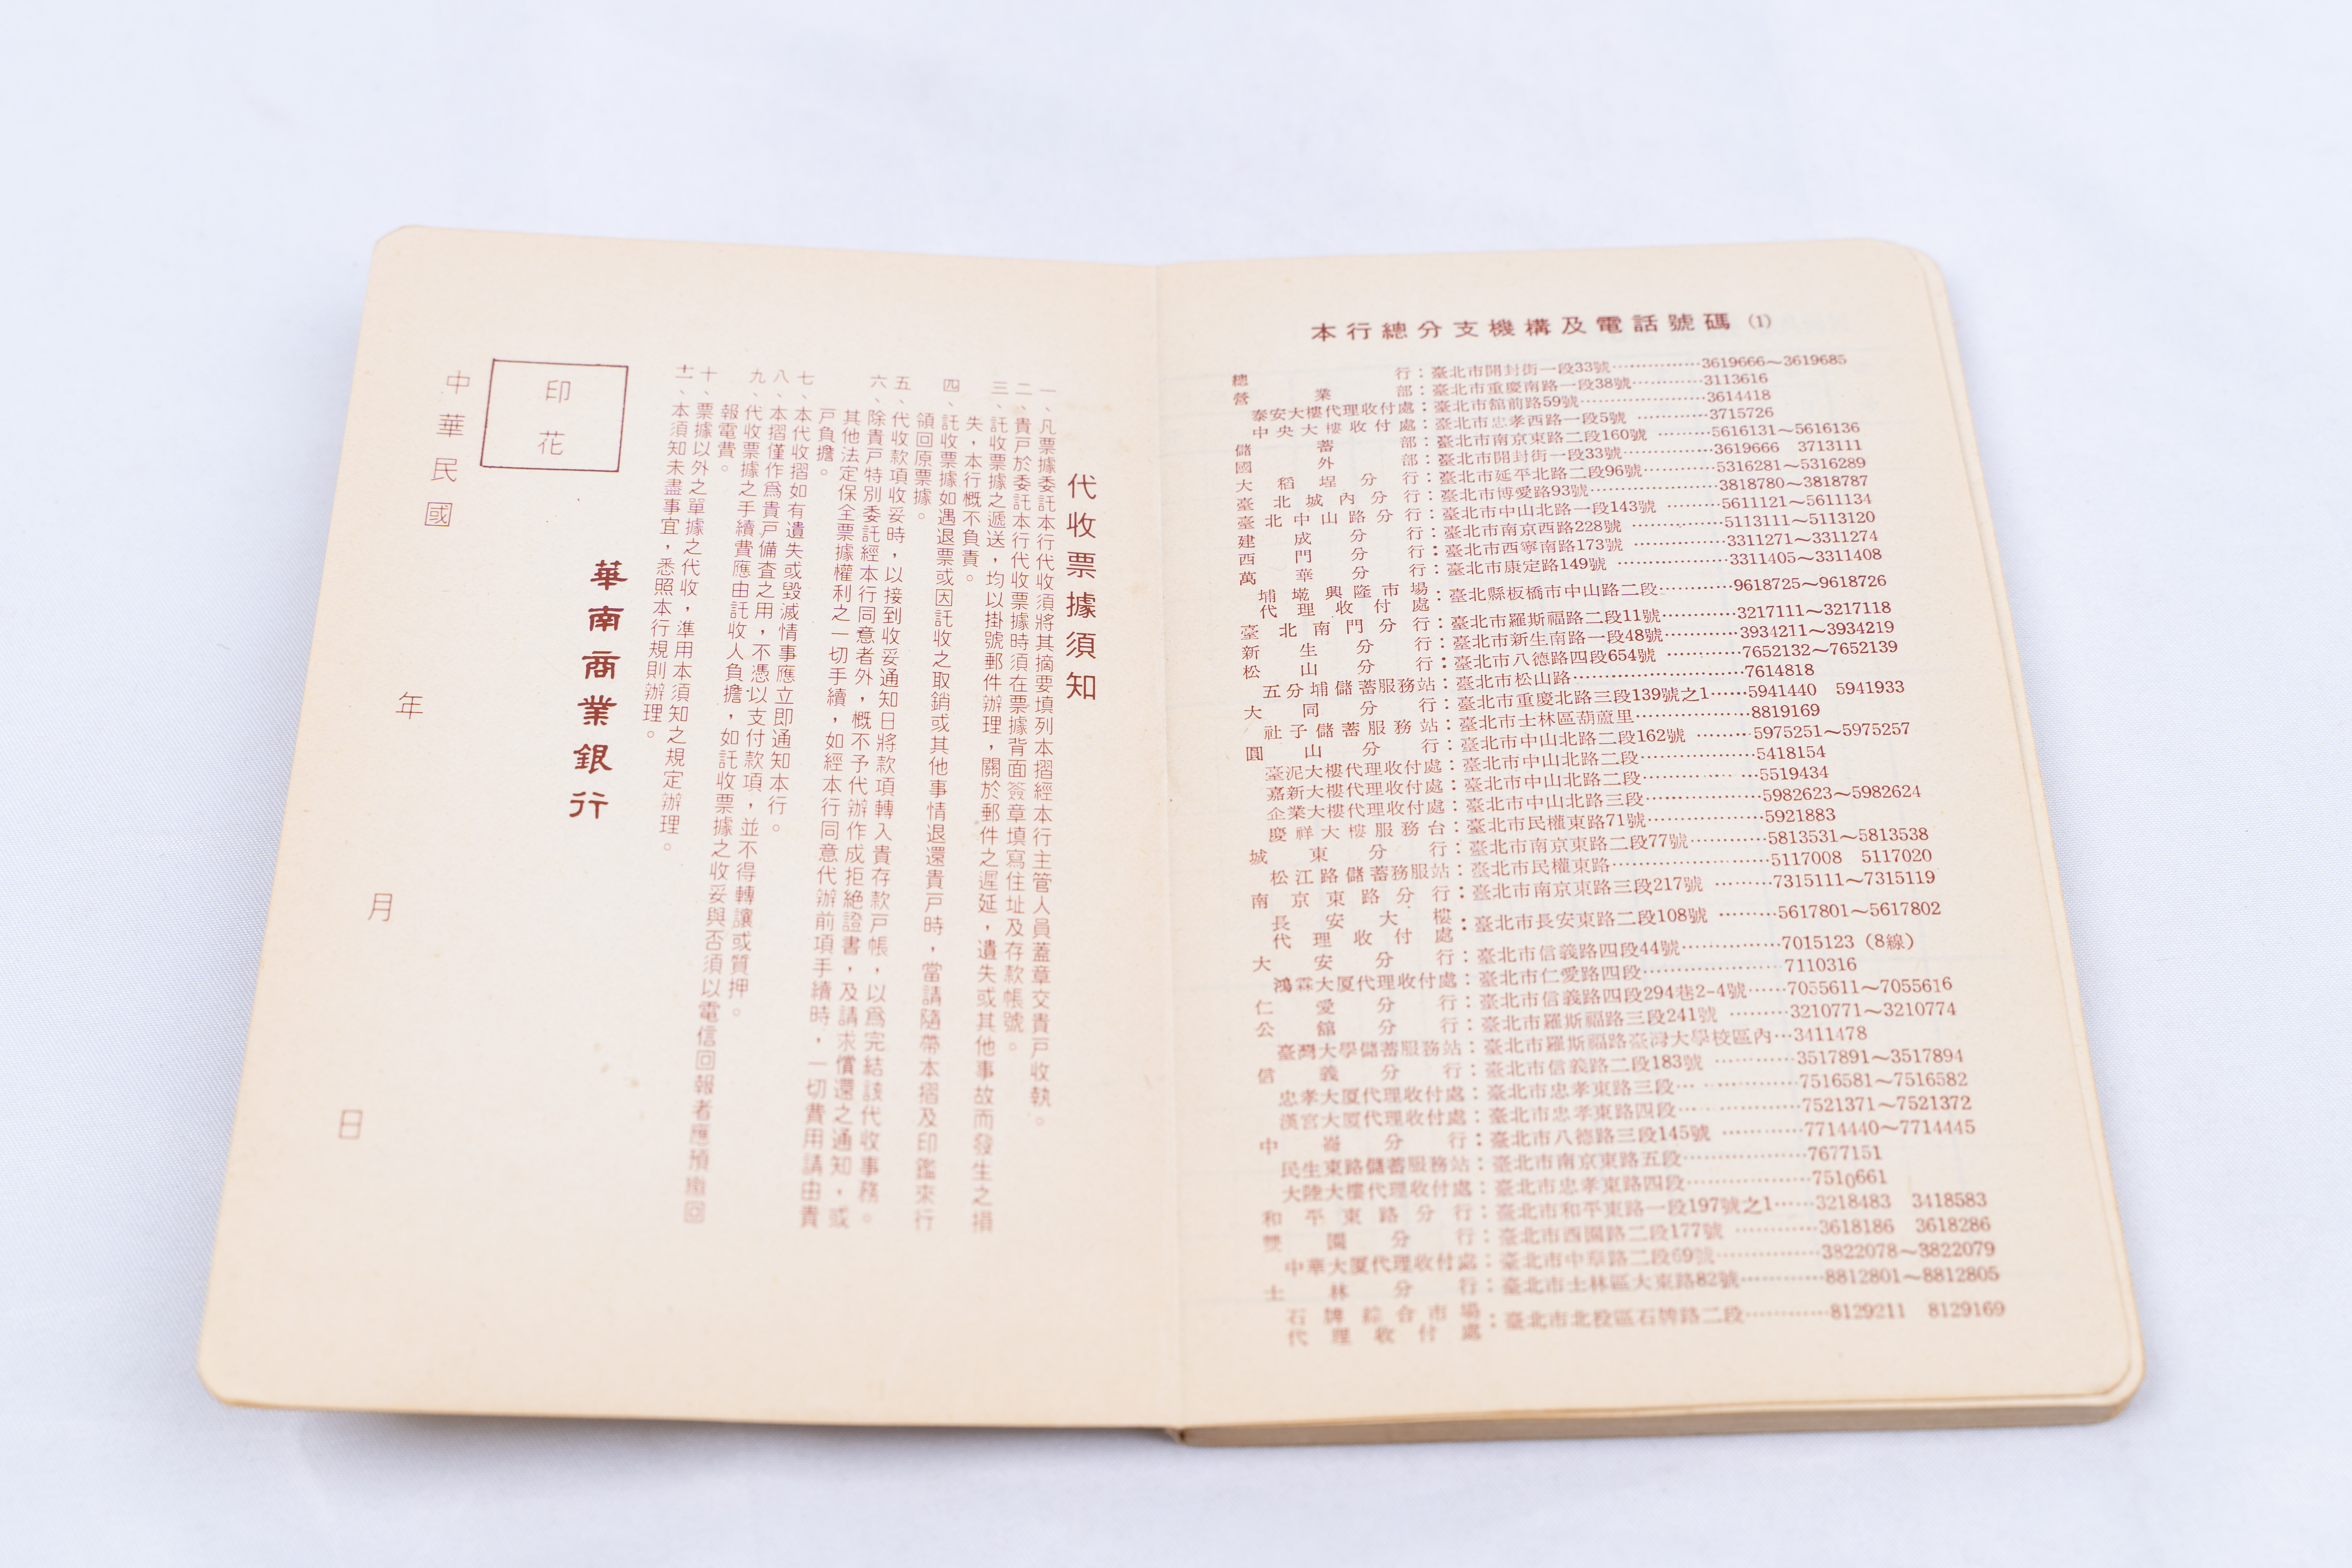 代收票據須知
一、凡票據委託本行代收須將其摘要填列本摺經本行主管人員蓋章交貴戶收執。
二、貴戶於委託本行代收票據時須在票據背面簽章填寫住址及存款帳號。
三、託收票據之遞送，均以掛號郵件辦理，關於郵件之遲延，遺失或其他事故而發生之損
失，本行概不負責。
四、託收票據如遇退票或因託收之取銷或其他事情退還貴戶時，當請隨帶本摺及印鑑來行
領回原票據。
五、代收款項收妥時，以接到收妥通知日將款項轉入貴存款戶帳，以爲完結該代收事務。
六、除貴戶特別委託經本行同意者外，概不予代辦作成拒絶證書，及請求償還之通知，或
其他法定保全票據權利之一切手續，如經本行同意代辦前項手續時，一切費用請由貴
戶負擔。
七、本代收摺如有遺失或毀滅情事應立即通知本行。
八、本摺僅作爲貴戶備査之用，不憑以支付款項，並不得轉讓或質押。
九、代收票據之手續費應由託收人負擔，如託收票據之收妥與否須以電信回報者應預繳回
報電費。
十、票據以外之單據之代收，準用本須知之規定辦理。
十一、本須知未盡事宜，悉照本行規則辦理。
華南商業銀行
印花
中華民國 年 月 日
本行總分支機構及電話號碼 (1)
總行：臺北市開封街一段33號……………3619666～3619685
營業部：臺北市重慶南路一段38號…………3113616
泰安大樓代理收付處：臺北市舘前路59號…………………3614418
中央大樓收付處：臺北市忠孝西路一段5號…………3715726
儲蓄部：臺北市南京東路二段160號………5616131～5616136
國外部：臺北市開封街一段33號……………3619666 3713111
大稻埕分行：臺北市延平北路二段96號…………5316281～5316289
臺北城內分行：臺北市博愛路93號…………………3818780～3818787
臺北中山路分行：臺北市中山北路一段143號………5611121～5611134
建成分行：臺北市南京西路228號……………5113111～5113120
西門分行：臺北市西寧南路173號……………3311271～3311274
萬華分行：臺北市康定路149號………………3311405～3311408
埔墘興隆市場代理收付處：臺北縣板橋市中山路二段…………9618725～9618726
臺北南門分行：臺北市羅斯福路二段11號…………3217111～3217118
新生分行：臺北市新生南路一段48號…………3934211～3934219
松山分行：臺北市八德路四段654號…………7652132～7652139
五分埔儲蓄服務站：臺北市松山路…………………………7614818
大同分行：臺北市重慶北路三段139號之1……5941440 5941933
社子儲蓄服務站：臺北市士林區葫蘆里………………8819169
圓山分行：臺北市中山北路二段162號………5975251～5975257
臺泥大樓代理收付處：臺北市中山北路二段………………5418154
嘉新大樓代理收付處：臺北市中山北路二段………………5519434
企業大樓代理收付處：臺北市中山北路三段………………5982623～5982624
慶祥大樓服務台：臺北市民權東路71號………………5921883
城東分行：臺北市南京東路二段77號…………5813531～5813538
松江路儲蓄務服站：臺北市民權東路……………………5117008 5117020
南京東路分行：臺北市南京東路三段217號………7315111～7315119
長安大樓代理收付處：臺北市長安東路二段108號………5617801～5617802
大安分行：臺北市信義路四段44號……………7015123（8線）
鴻霖大厦代理收付處：臺北市仁愛路四段…………………7110316
仁愛分行：臺北市信義路四段294巷2-4號……7055611～7055616
公館分行：臺北市羅斯福路三段241號………3210771～3210774
臺灣大學儲蓄服務站：臺北市羅斯福路臺灣大學校區內…3411478
信義分行：臺北市信義路二段183號…………3517891～3517894
忠孝大厦代理收付處：臺北市忠孝東路三段………………7516581～7516582
漢宮大厦代理收付處：臺北市忠孝東路四段………………7521371～7521372
中崙分行：臺北市八德路三段145號…………7714440～7714445
民生東路儲蓄服務站：臺北市南京東路五段………………7677151
大陸大樓代理收付處：臺北市忠孝東路四段………………7510661
和平東路分行：臺北市和平東路一段197號之1……3218483 3418583
雙園分行：臺北市西園路二段177號…………3618186 3618286
中華大厦代理收付處：臺北市中華路二段69號……………3822078～3822079
士林分行：臺北市士林區大東路82號…………8812801～8812805
石牌綜合市場代理收付處：臺北市北投區石牌路二段…………8129211 8129169